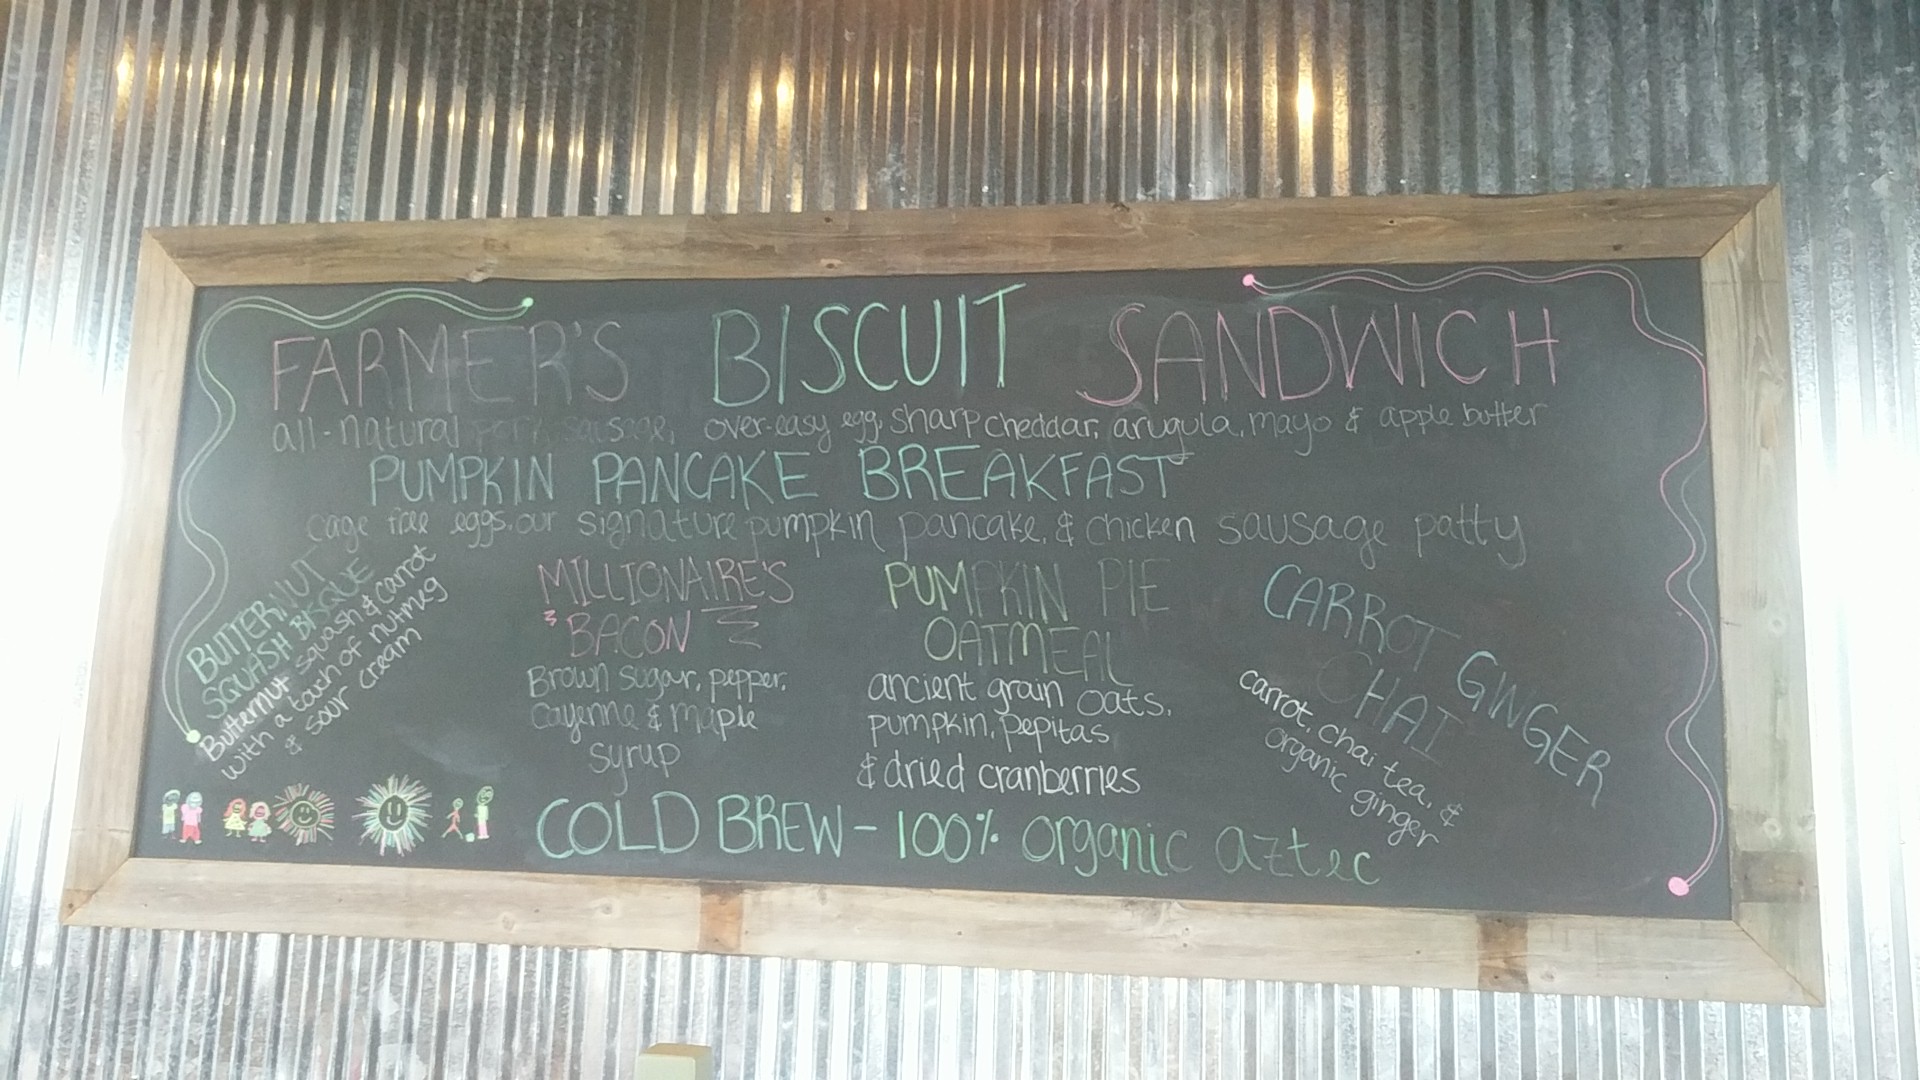 FARMER'S BISCUIT SANDWICH
all-natural pork sausage, over-easy egg, sharp cheddar, arugula, mayo & apple butter
PUMPKIN PANCAKE BREAKFAST
cage free eggs, our signature pumpkin pancake, & chicken sausage patty
BUTTERNUT
SQUASH BISQUE
Butternut squash & carrot
with a touch of nutmeg
& sour cream
MILLIONAIRE'S
BACON
Brown sugar, pepper,
Cayenne & Maple
syrup
PUMPKIN PIE
OATMEAL
ancient grain oats,
pumpkin, pepitas
& dried cranberries
CARROT GINGER
CHAI
carrot, chai tea, &
organic ginger
COLD BREW - 100% organic aztec